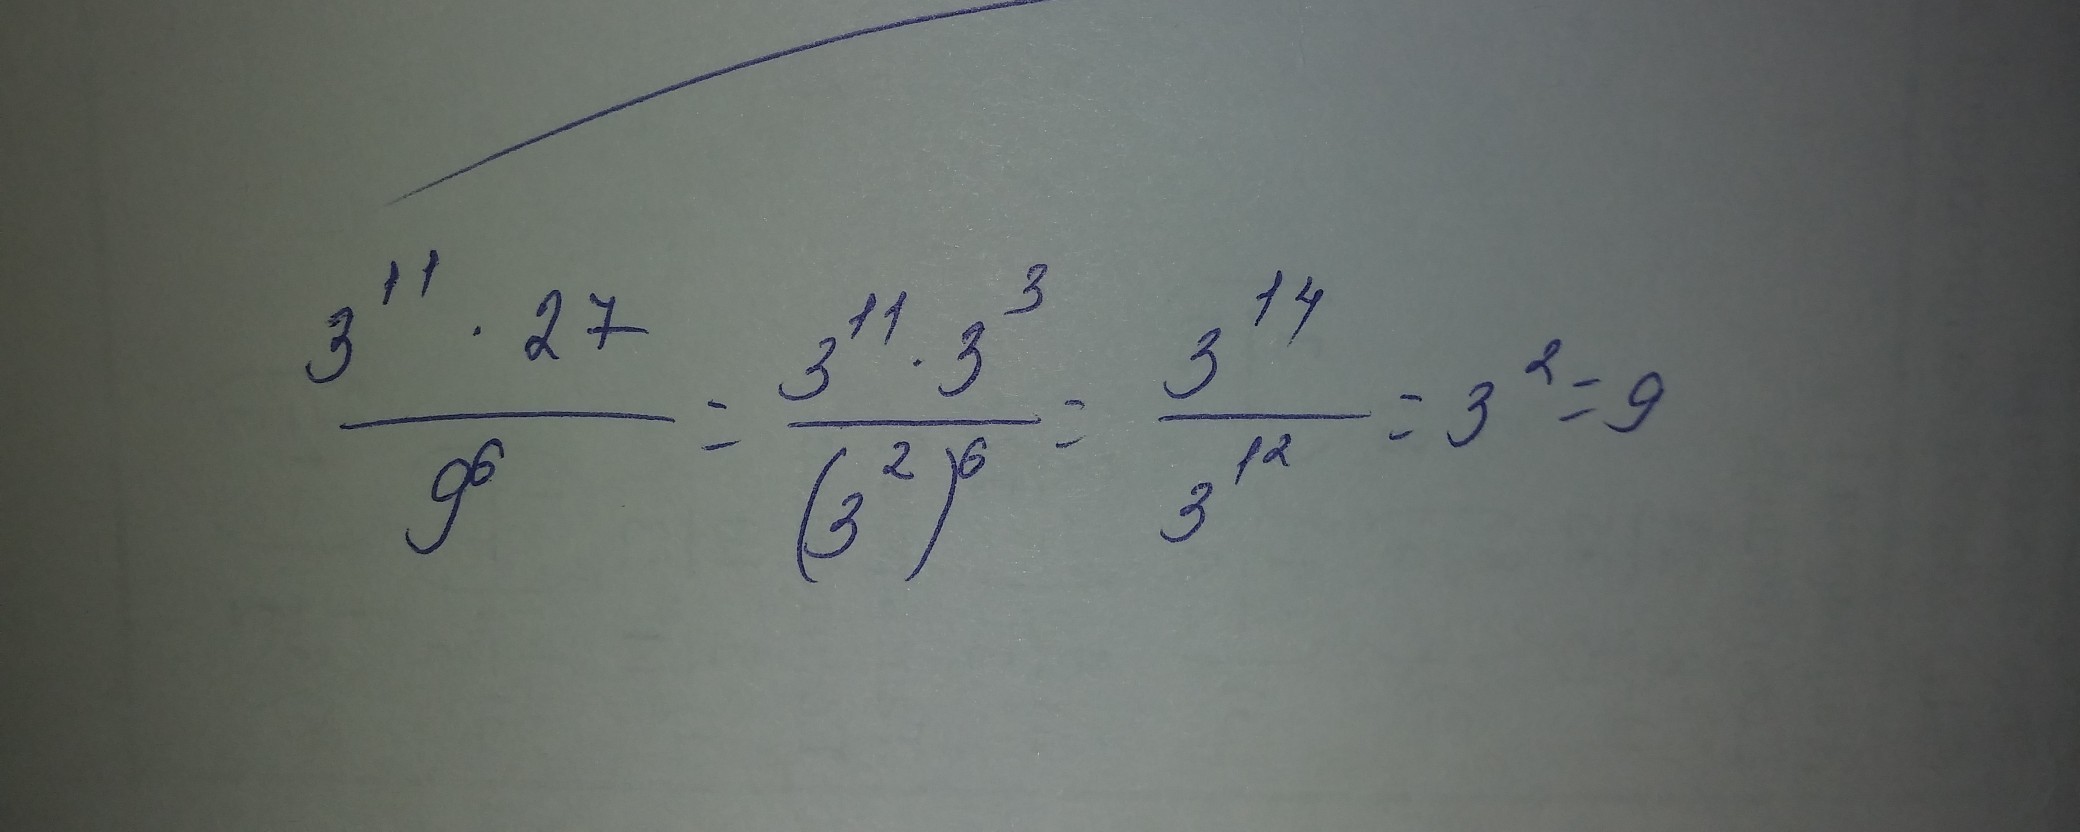 3¹¹ · 27 / 9⁶ = 3¹¹ · 3³ / (3²)⁶ = 3¹⁴ / 3¹² = 3² = 9